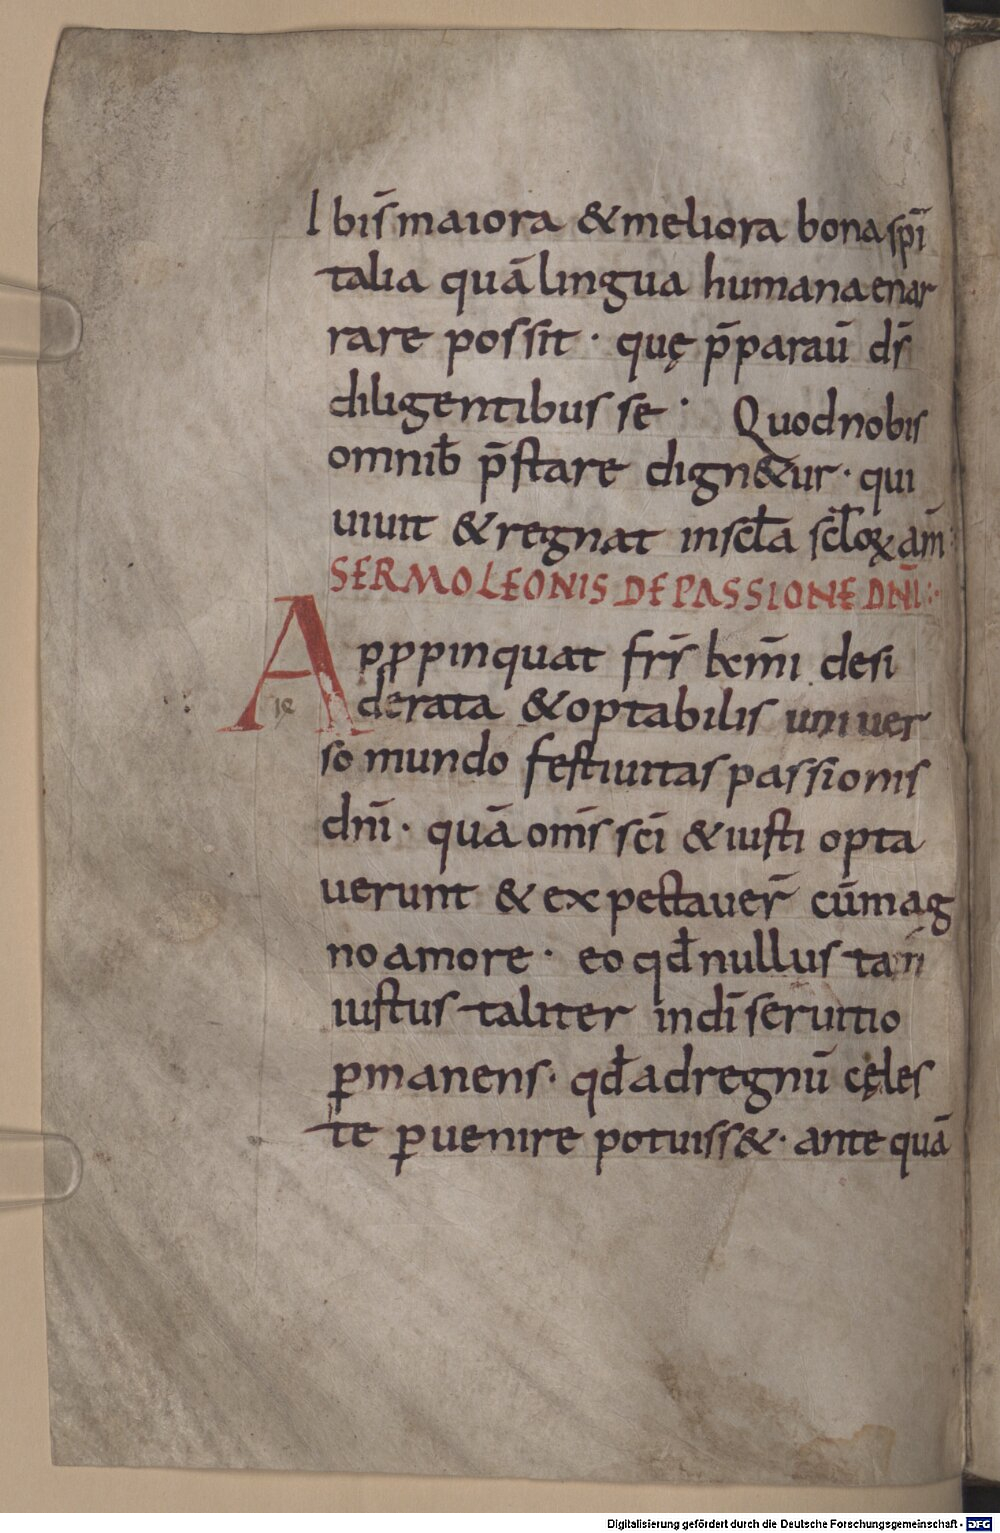 l bis̄ maiora & meliora bona sp̄i
talia quā lingua humana enar
rare possit · quę p̄paraū ds̄
diligentibus se · Quod nobis
omnib̄ p̄stare dign&ur · qui
uiuit & regnat in scl̄a scl̄oꝝ am̄
SERMO LEONIS DE PASSIONE DN̄I :·
Apꝓpinquat frs̄ kmī desi
derata & optabilis uniuer
so mundo festiuitas passionis
dnī · quā omīs scī & iusti opta
uerunt & expectauer̄ cū mag
no amore · eo qd̄ nullus tam
iustus taliter in dī seruitio
ꝑmanens · qd̄ ad regnū cęles
te ꝑuenire potuiss& · ante quā
Digitalisierung gefördert durch die Deutsche Forschungsgemeinschaft - DFG